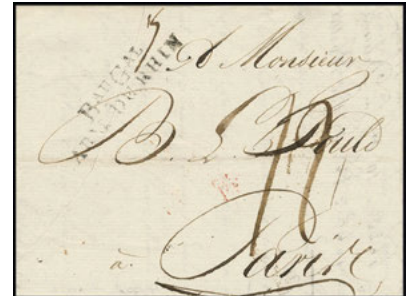 BAU GAL
ARM. DU RHIN
A Monsieur
B. L. Fould
à
Paris